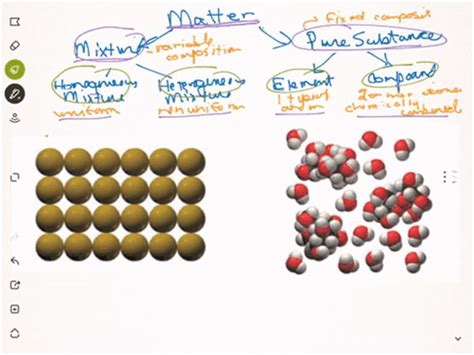 Matter
fixed composit
Mixture
variable composition
Pure Substance
Homogeneous Mixture
Heterogeneous Mixture
Element
Compound
uniform
non uniform
1 type of atom
2 or more
chemically combined